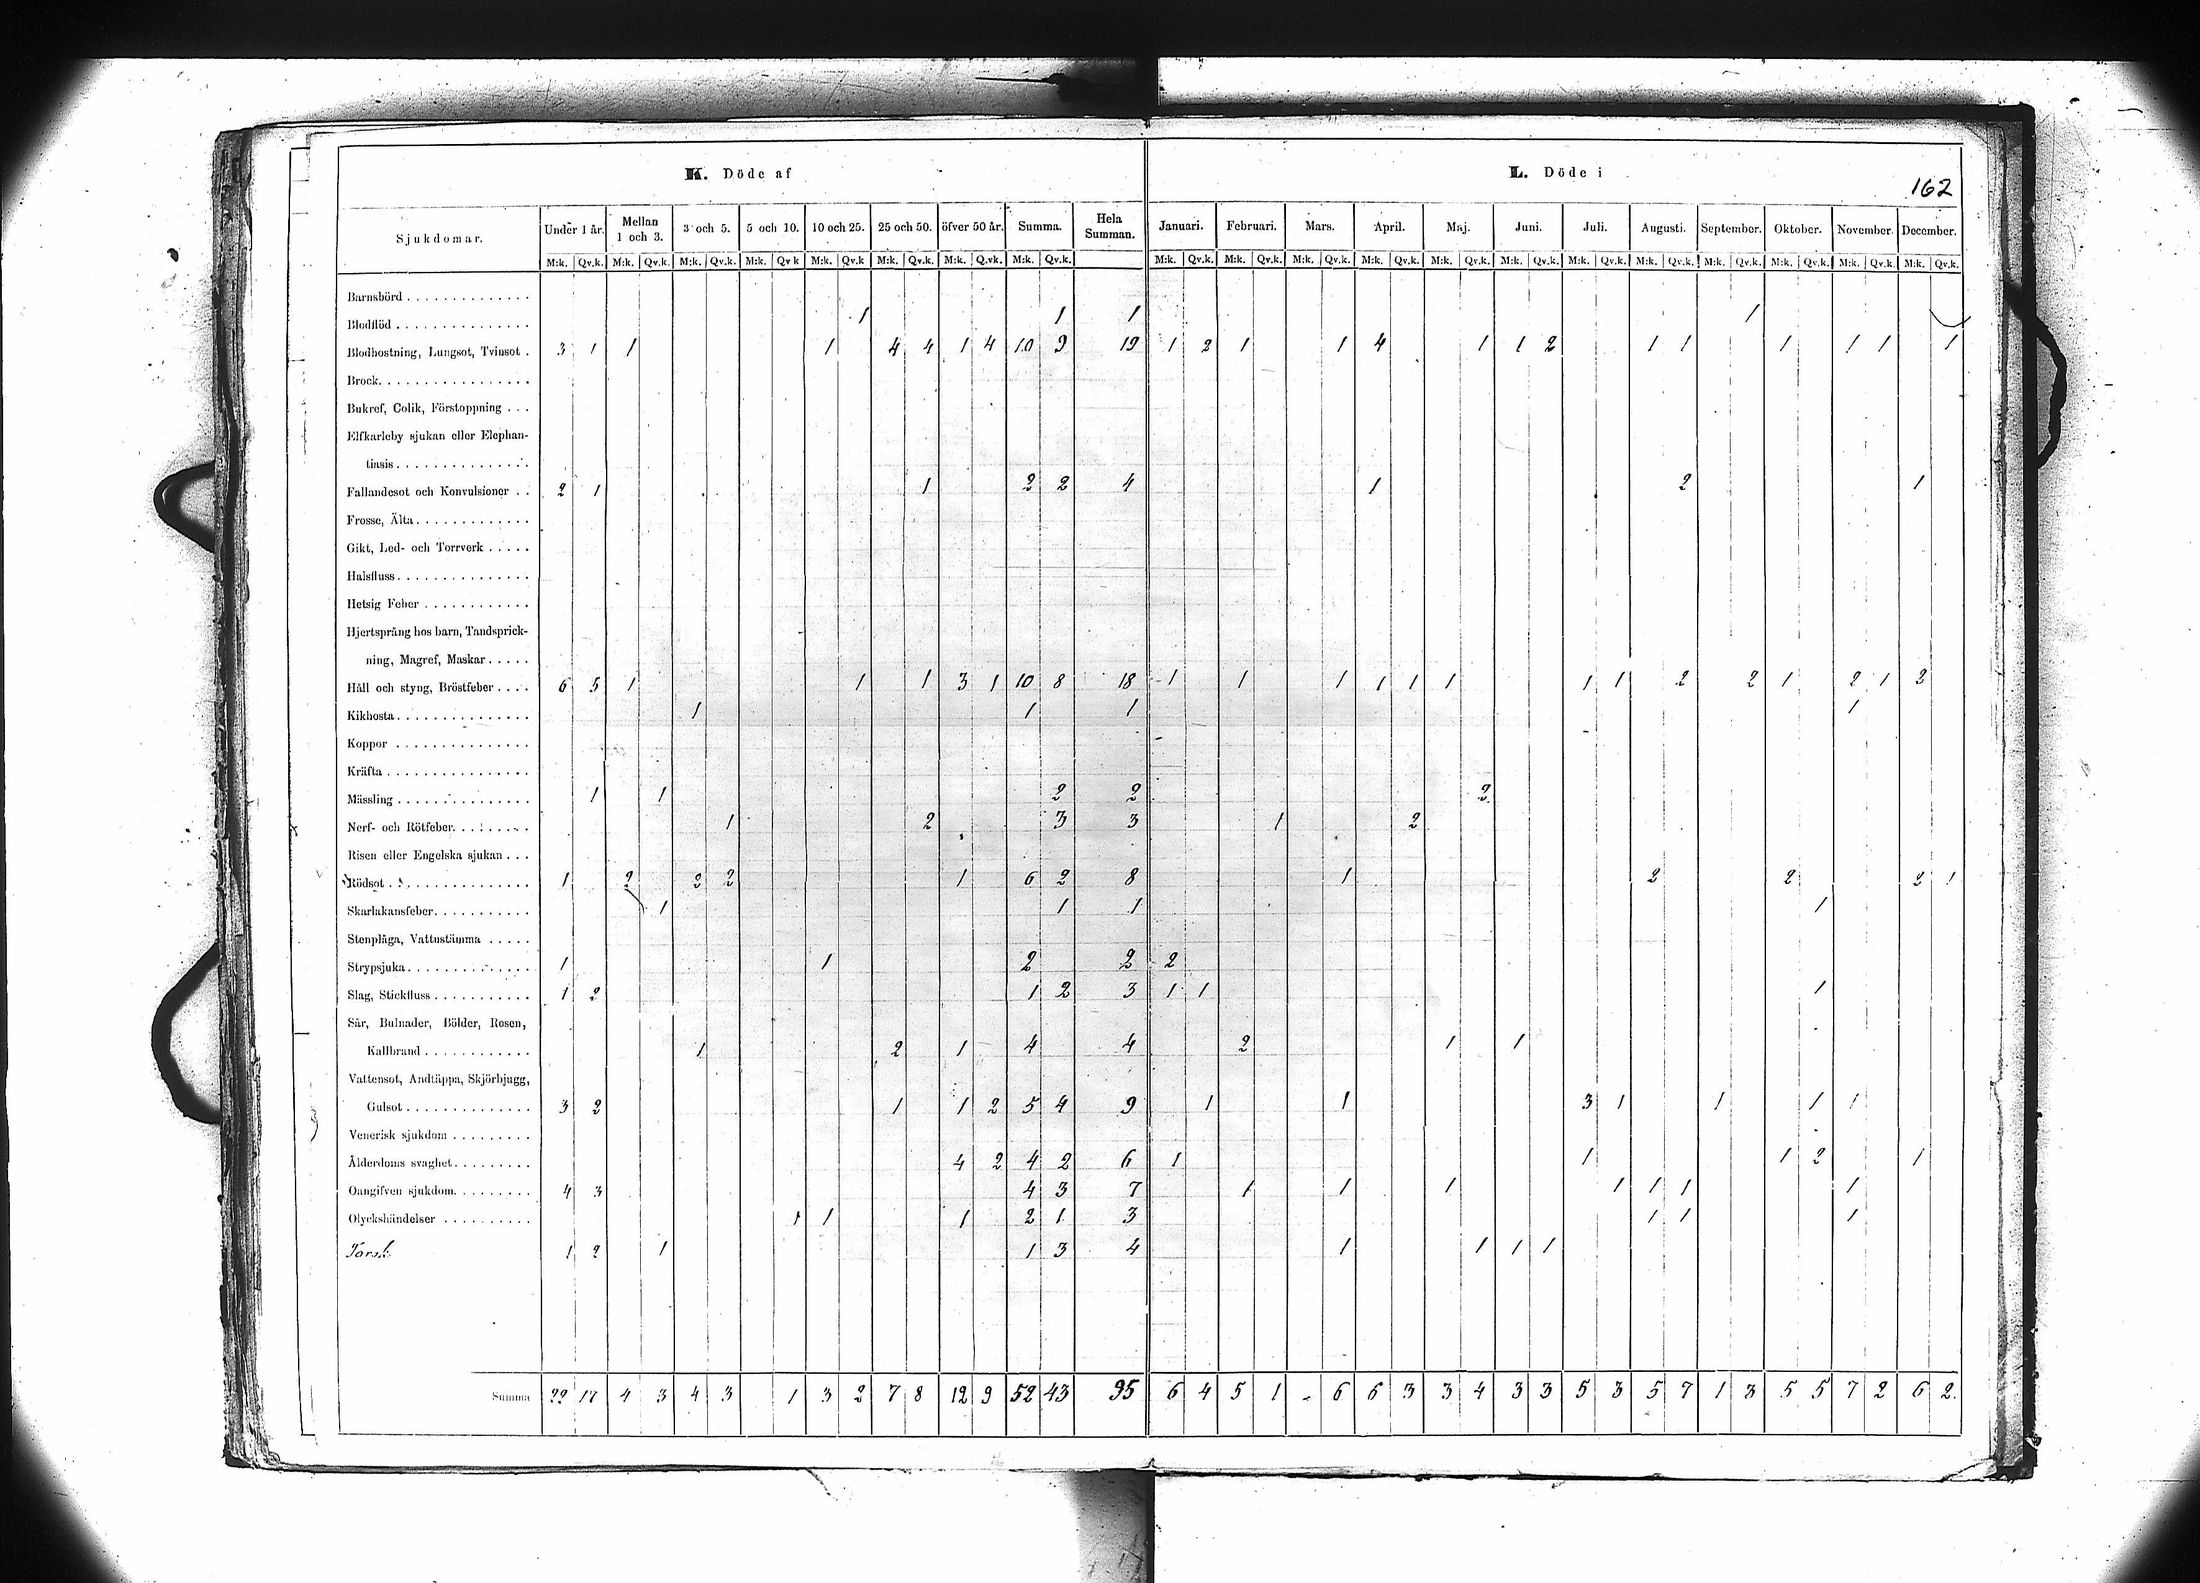 K. Döde af
L. Döde i
162
Sjukdomar. Under 1 år. Mellan 1 och 3. 3 och 5. 5 och 10. 10 och 25. 25 och 50. öfver 50 år. Summa. Hela Summan. Januari. Februari. Mars. April. Maj. Juni. Juli. Augusti. September. Oktober. November. December.
M:k. Qv.k. M:k. Qv.k. M:k. Qv.k. M:k. Qv k M:k. Qv.k M:k. Qv.k. M:k. Q.vk. M:k. Qv.k. M:k. Qv.k. M:k. Qv.k. M:k. Qv.k. M:k. Qv.k. M:k. Qv.k. M:k. Qv.k. M:k. Qv.k. M:k. Qv.k. M:k. Qv.k. M:k. Qv.k. M:k. Qv.k. M:k. Qv.k.
Barnsbörd . . . . . . . . . . . . . .
Blodflöd . . . . . . . . . . . . . . . 1 1 1 1
Blodhostning, Lungsot, Tvinsot . 3 1 1 1 4 4 1 4 10 9 19 1 2 1 1 4 1 1 2 1 1 1 1 1 1
Brock. . . . . . . . . . . . . . . . .
Bukref, Colik, Förstoppning . . .
Elfkarleby sjukan eller Elephan-
tiasis . . . . . . . . . . . . . . .
Fallandesot och Konvulsioner . . 2 1 1 2 2 4 1 2 1
Frosse, Älta . . . . . . . . . . . . .
Gikt, Led- och Torrverk . . . . .
Halsfluss . . . . . . . . . . . . . . .
Hetsig Feber . . . . . . . . . . . .
Hjertsprång hos barn, Tandsprick-
ning, Magref, Maskar . . . . .
Håll och styng, Bröstfeber . . . . 6 5 1 1 1 3 1 10 8 18 1 1 1 1 1 1 1 1 2 2 1 2 1 2
Kikhosta . . . . . . . . . . . . . . . 1 1 1 1
Koppor . . . . . . . . . . . . . . .
Kräfta . . . . . . . . . . . . . . . .
Mässling . . . . . . . . . . . . . . . 1 1 2 2 2
Nerf- och Rötfeber. . . . . . . . . 1 2 3 3 1 2
Risen eller Engelska sjukan . . .
Rödsot . . . . . . . . . . . . . . . . 1 2 2 2 1 6 2 8 1 2 2 2 1
Skarlakansfeber. . . . . . . . . . . 1 1 1 1
Stenplåga, Vattustämma . . . . .
Strypsjuka . . . . . . . . . . . . . . 1 1 2 2 2
Slag, Stickfluss . . . . . . . . . . . 1 2 1 2 3 1 1 1
Sår, Bulnader, Bölder, Rosen,
Kallbrand . . . . . . . . . . . . 1 2 1 4 4 2 1 1
Vattensot, Andtäppa, Skjörbjugg,
Gulsot . . . . . . . . . . . . . . 3 2 1 1 2 5 4 9 1 1 3 1 1 1 1
Venerisk sjukdom . . . . . . . . .
Ålderdoms svaghet. . . . . . . . . 4 2 4 2 6 1 1 1 2 1
Oangifven sjukdom. . . . . . . . . 4 3 4 3 7 1 1 1 1 1 1 1
Olyckshändelser . . . . . . . . . . 1 1 1 2 1 3 1 1 1
Torsk 1 2 1 1 3 4 1 1 1 1
Summa 22 17 4 3 4 3 1 3 2 7 8 12 9 52 43 95 6 4 5 1 - 6 6 3 3 4 3 3 5 3 5 7 1 3 5 5 7 2 6 2.